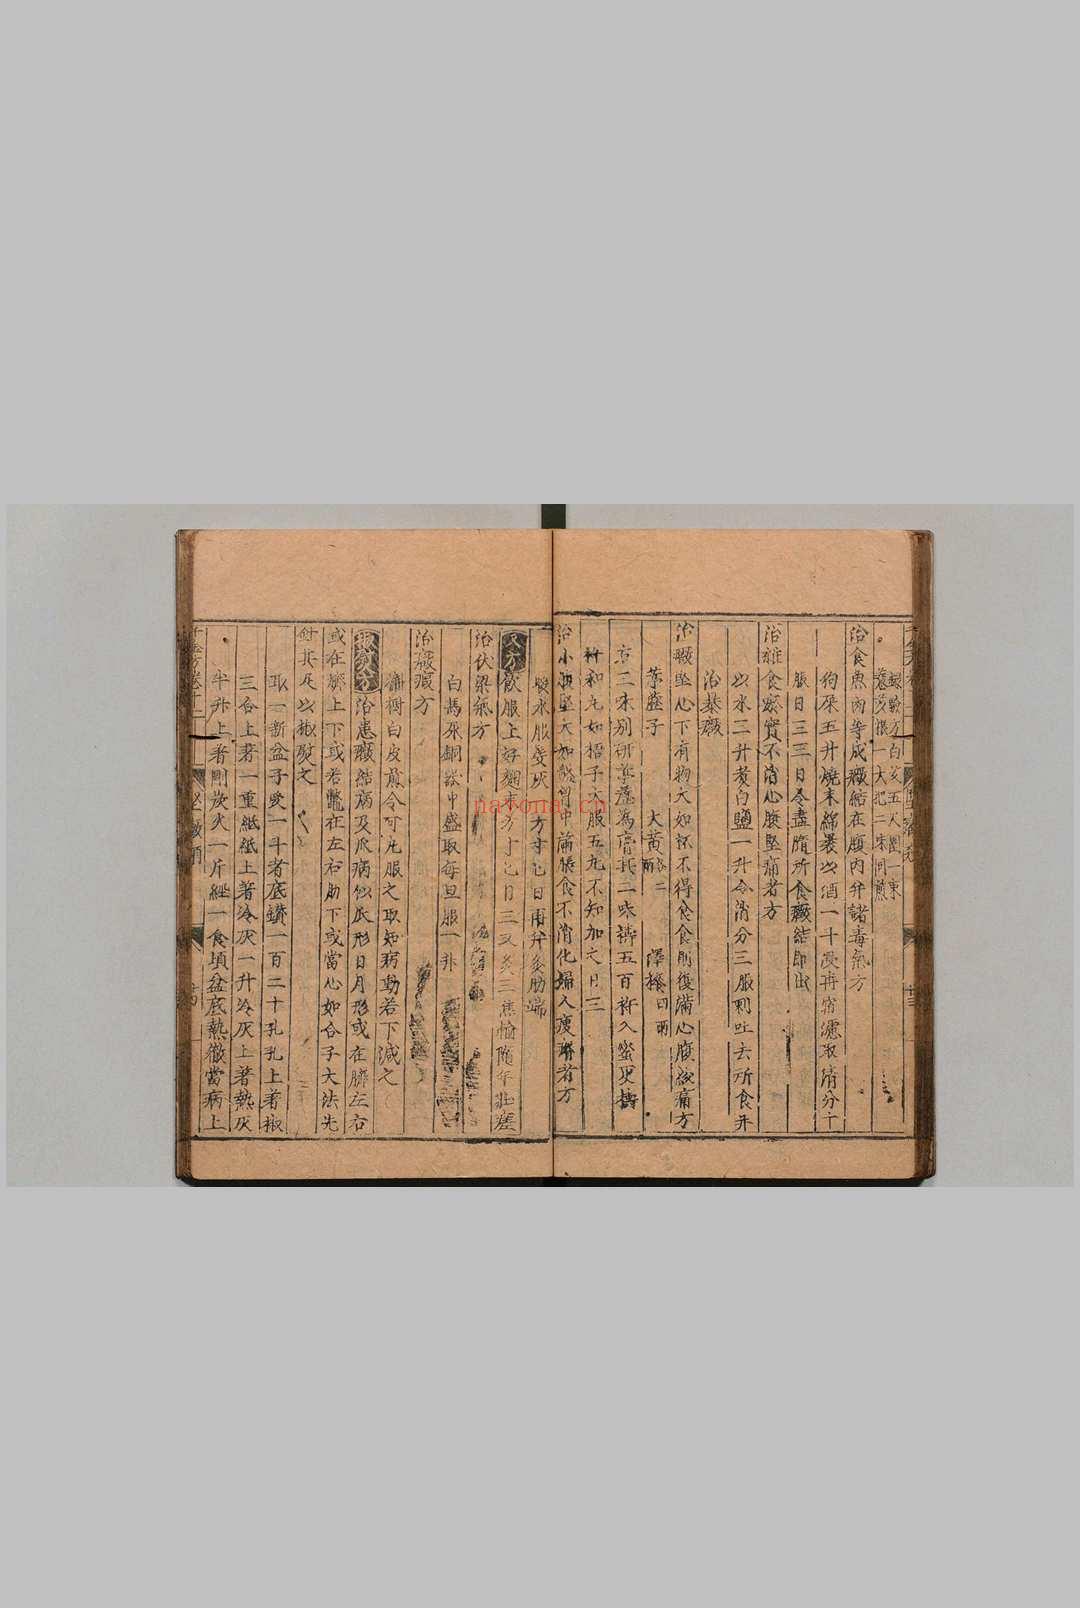 治食魚肉等成癥結在腹内并諸毒氣方
狗屎五升燒末綿裹以酒一斗浸再宿濾取清分十
服日三三日令盡隨所食癥結即出
治雜食瘀實不消心腹堅痛者方
以水三升煮白鹽一升令消分三服刺吐去所食并
治暴癥
治癥堅心下有物大如杯不得食食則腹滿心腹絞痛方
葶藶子 大黃 澤漆
右三味別研葶藶為膏 二味擣五百杵入蜜更擣
杵和丸如梧子大服五丸不知加之日三
治小腹堅大如盤胷中滿脹食不消化婦人瘦瘠者方
煖水服髮灰一方寸匕日再并灸肋端
又方 飲服上好麴末方寸匕日三又灸三焦俞隨年壯
治伏梁氣方
白馬尿銅器中盛取每旦服一升
治癥瘕方
槲樹白皮煎令可丸服之取知病動若下減之
熨癥方 治患癥結病及爪病似爪形日月形或在臍左右
或在臍上下或若鱉在左右肋下或當心如合子大法先
針其足以椒熨之
取一新盆子受一斗者底鑽一百二十孔孔上著椒
三合上著一重紙紙上著冷灰一升冷灰上著熱灰
半升上著剛炭火一斤經一食頃盆底熱徹當病上
nayona.cn